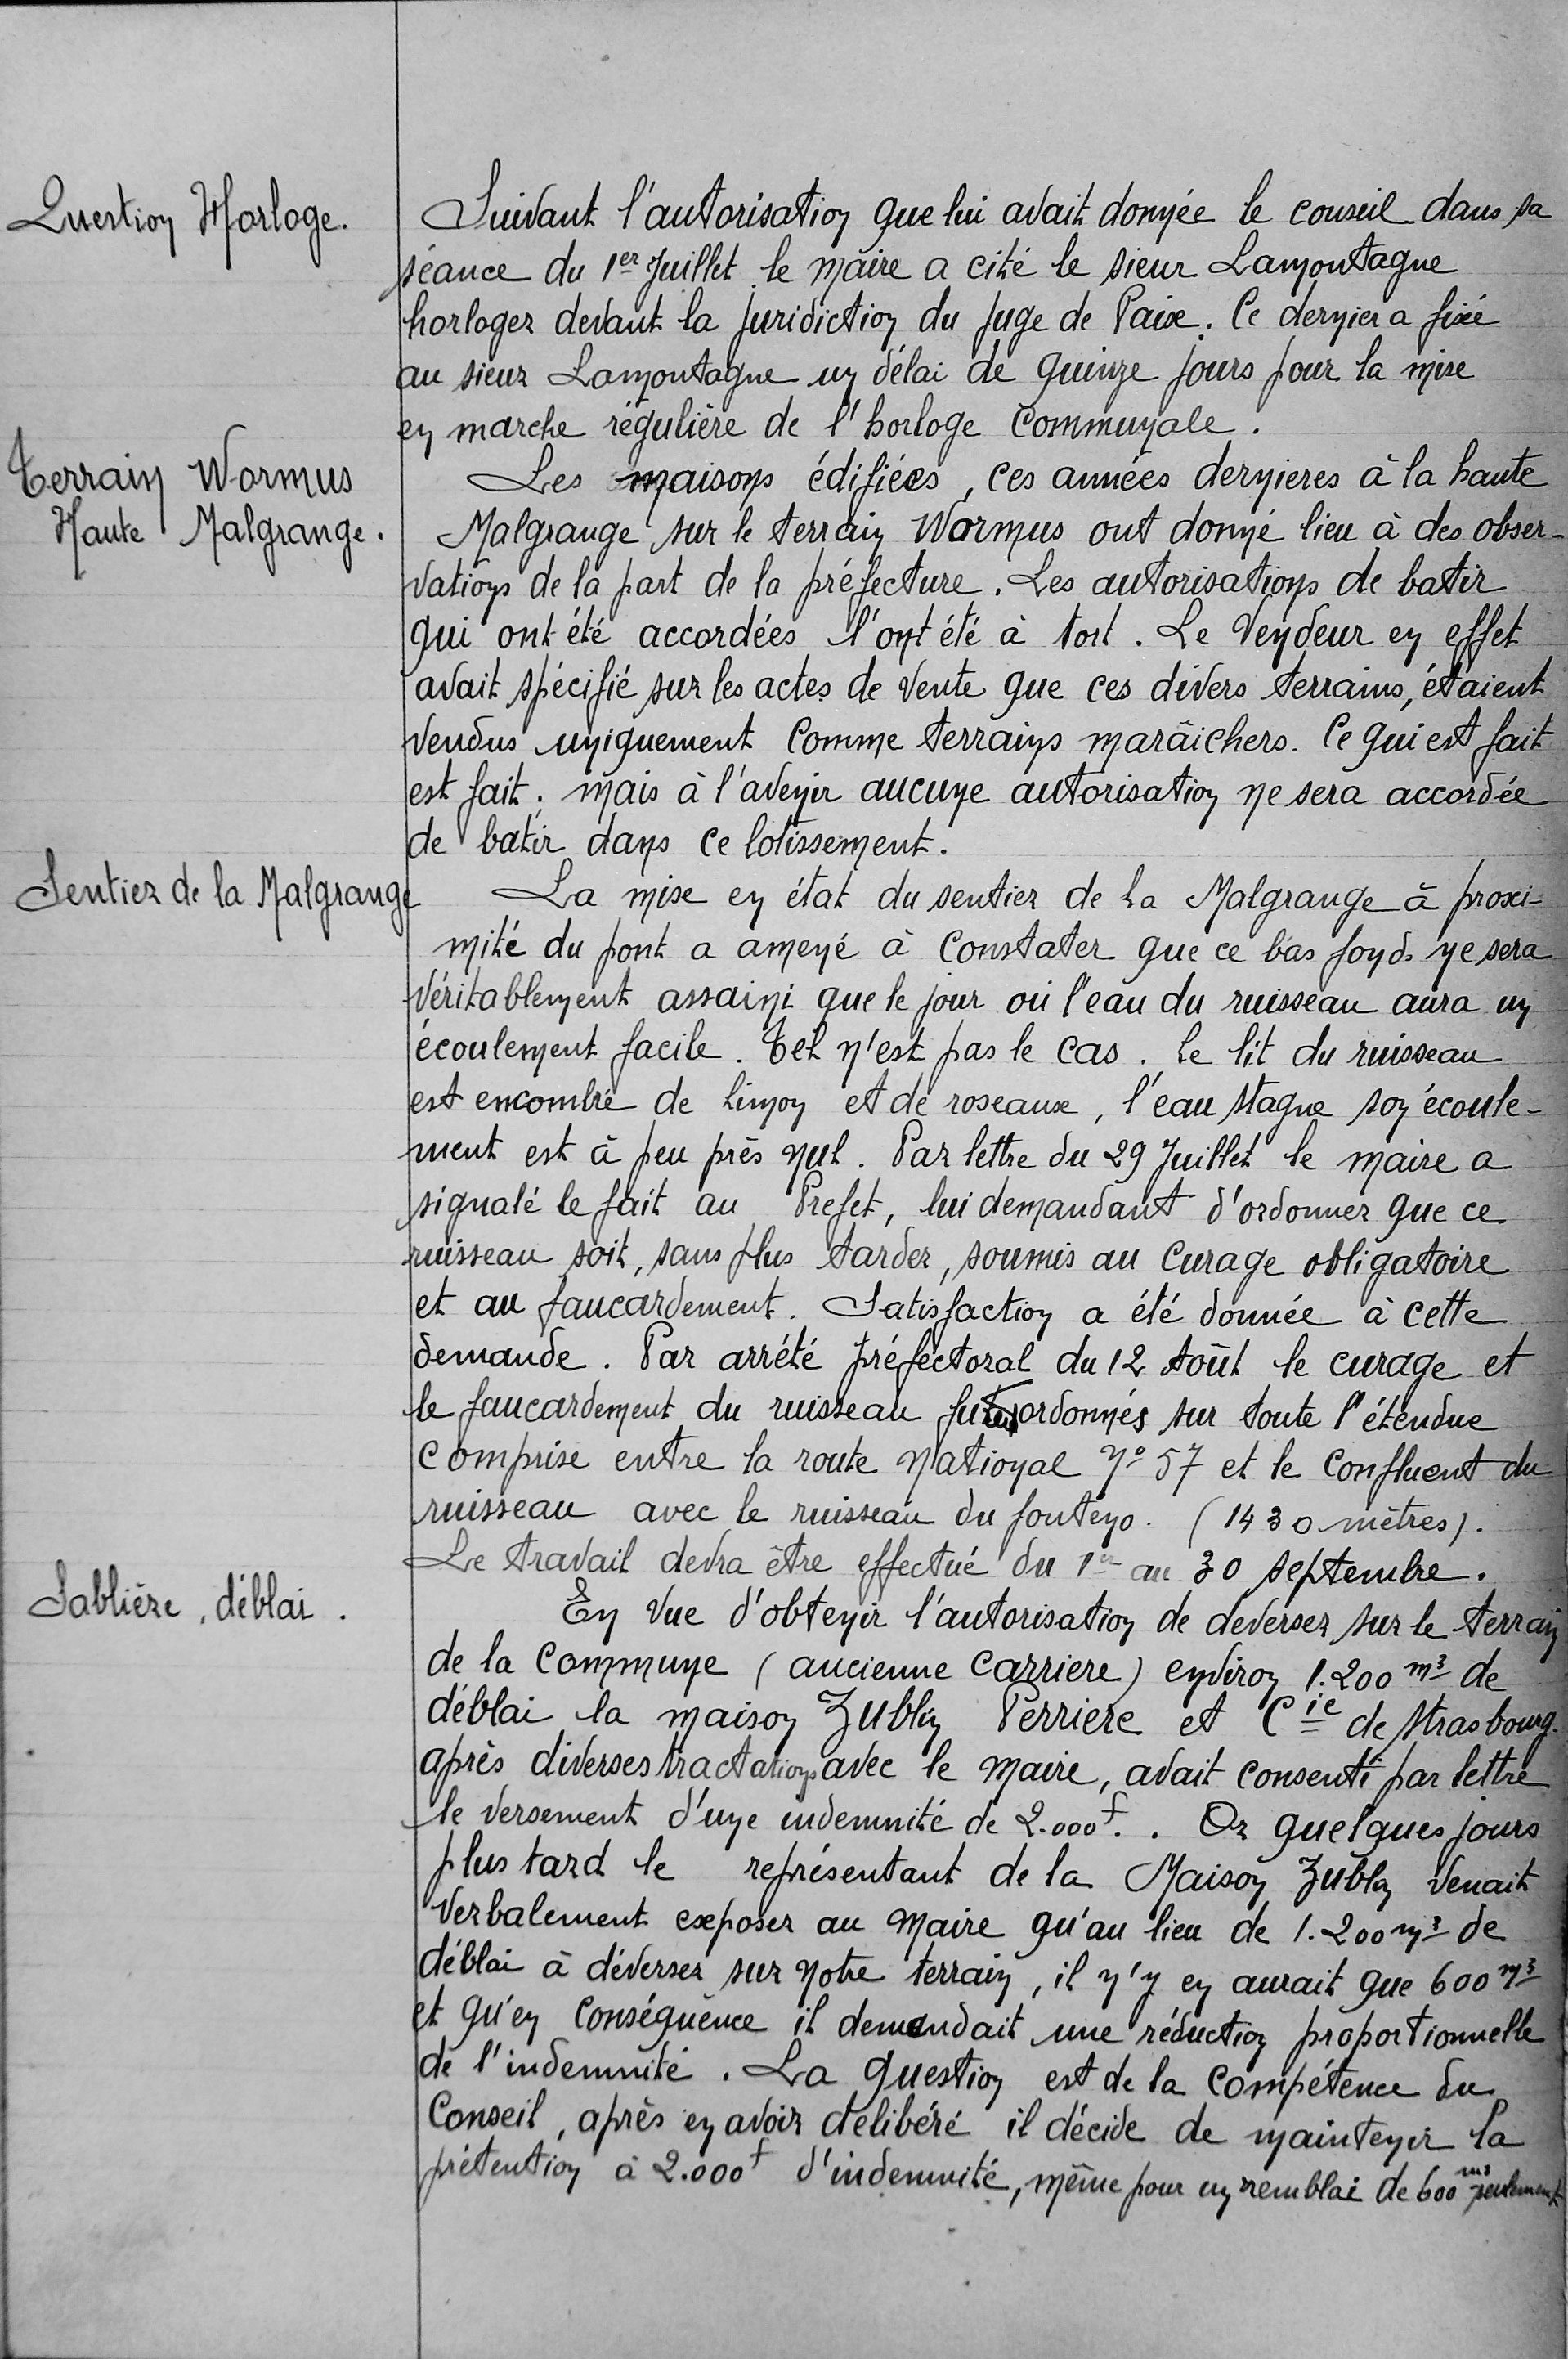 Question Horloge.
Suivant l'autorisation que lui avait donnée le conseil dans sa
séance du 1er Juillet le maire a cité le sieur Lamontagne
horloger devant la juridiction du Juge de Paix. Ce dernier a fixé
au sieur Lamontagne un délai de quinze jours pour la mise
en marche régulière de l'horloge Communale.
Terrain Wormus
Haute Malgrange.
Les maisons édifiées, ces années dernieres à la haute
Malgrange sur le terrain Wormus ont donné lieu à des obser-
vations de la part de la préfecture. Les autorisations de batir
qui ont été accordées l'ont été à tort. Le Vendeur en effet
avait spécifié sur les actes de vente que ces divers terrains, étaient
vendus uniquement Comme terrains maraîchers. Ce qui est fait
est fait. mais à l'avenir aucune autorisation ne sera accordée
de batir dans ce lotissement.
Sentier de la Malgrange
La mise en état du sentier de la Malgrange à proxi-
mité du pont a amené à Constater que ce bas fond ne sera
véritablement assaini que le jour où l'eau du ruisseau aura un
écoulement facile. Tel n'est pas le cas. Le lit du ruisseau
est encombré de limon et de roseaux, l'eau stagne son écoule-
ment est à peu près nul. Par lettre du 29 Juillet le maire a
signalé le fait au Prefet, lui demandant d'ordonner que ce
ruisseau soit, sans plus tarder, soumis au Curage obligatoire
et au faucardement. Satisfaction a été donnée à cette
demande. Par arrêté préfectoral du 12 Août le curage et
le faucardement du ruisseau ordonnés sur toute l'étendue
comprise entre la route National N° 57 et le Confluent du
ruisseau avec le ruisseau du fonteno. (1430 mètres).
Le travail devra être effectué du 1er au 30 septembre.
Sablière, déblai.
En vue d'obtenir l'autorisation de deverser sur le terrain
de la Commune (ancienne Carriere) environ 1.200 m3 de
déblai la maison Zublin Perriere et Cie de Strasbourg.
après diverses tractations avec le Maire, avait consenti par lettre
le versement d'une indemnité de 2.000f. . Or quelques jours
plus tard le représentant de la Maison Zublin Venait
Verbalement exposer au Maire qu'au lieu de 1.200 m3 de
déblai à déverser sur notre terrain, il n'y en aurait que 600 m3
et qu'en Conséquence il demandait une réduction proportionnelle
de l'indemnité. La question est de la Compétence du
Conseil, après en avoir delibéré il décide de maintenir la
prétention à 2.000f d'indemnité, même pour un remblai de 600 m3 seulement